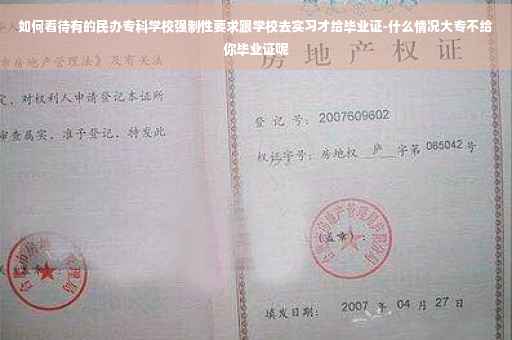 如何看待有的民办专科学校强制性要求跟学校去实习才给毕业证-什么情况大专不给
你毕业证呢
房地产管理法》及有关法
定，对权利人申请登记本证所
审查属实，准予登记，特发此
房地产权证
登记号：2007609602
权证字号：房地权 庐 字第 085042 号
(盖章)：
填发日期： 2007 年 04 月 27 日